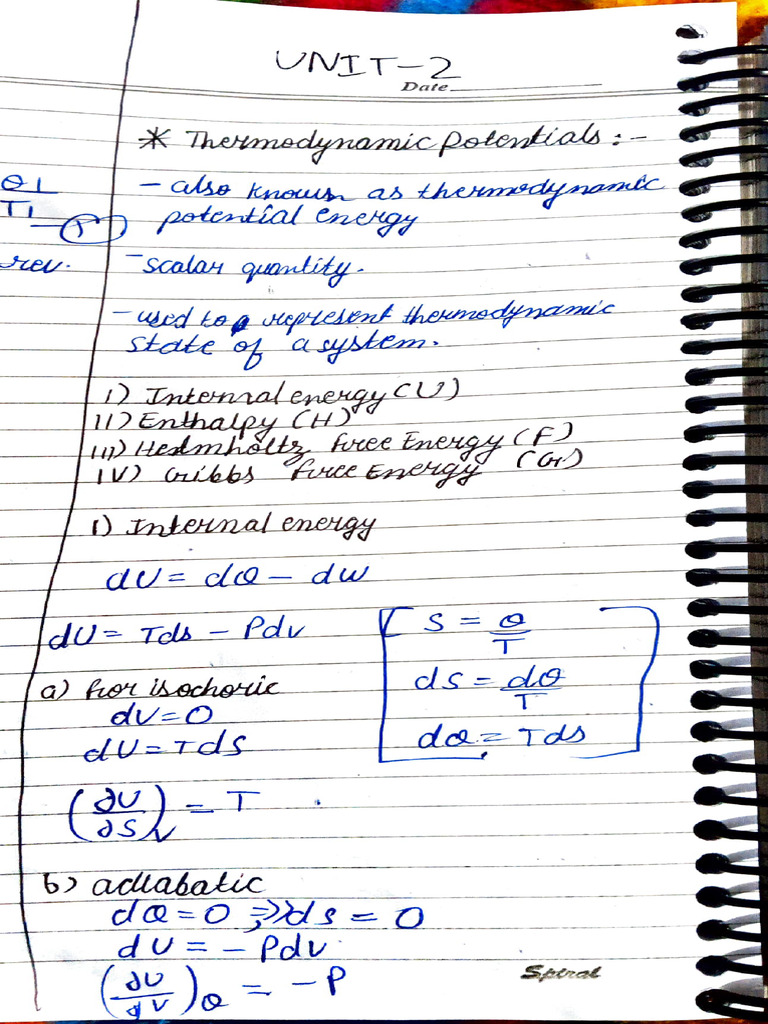 UNIT-2
Date
* Thermodynamic Potentials :-
- also known as thermodynamic
potential energy
Q1
T1
T
rev.
- scalar quantity.
- used to represent thermodynamic
state of a system.
i) Internal energy (U)
ii) Enthalpy (H)
iii) Helmholtz free Energy (F)
iv) Gibbs free Energy (G)
1) Internal energy
dU = dQ - dW
dU = Tds - Pdv
[ S = Q/T
ds = dQ/T
dQ = Tds ]
a) for isochoric
dV = 0
dU = Tds
(∂U/∂S)v = T
b) adiabatic
dQ = 0 ⇒ ds = 0
dU = - Pdv
(∂U/∂V)Q = - P
Spiral